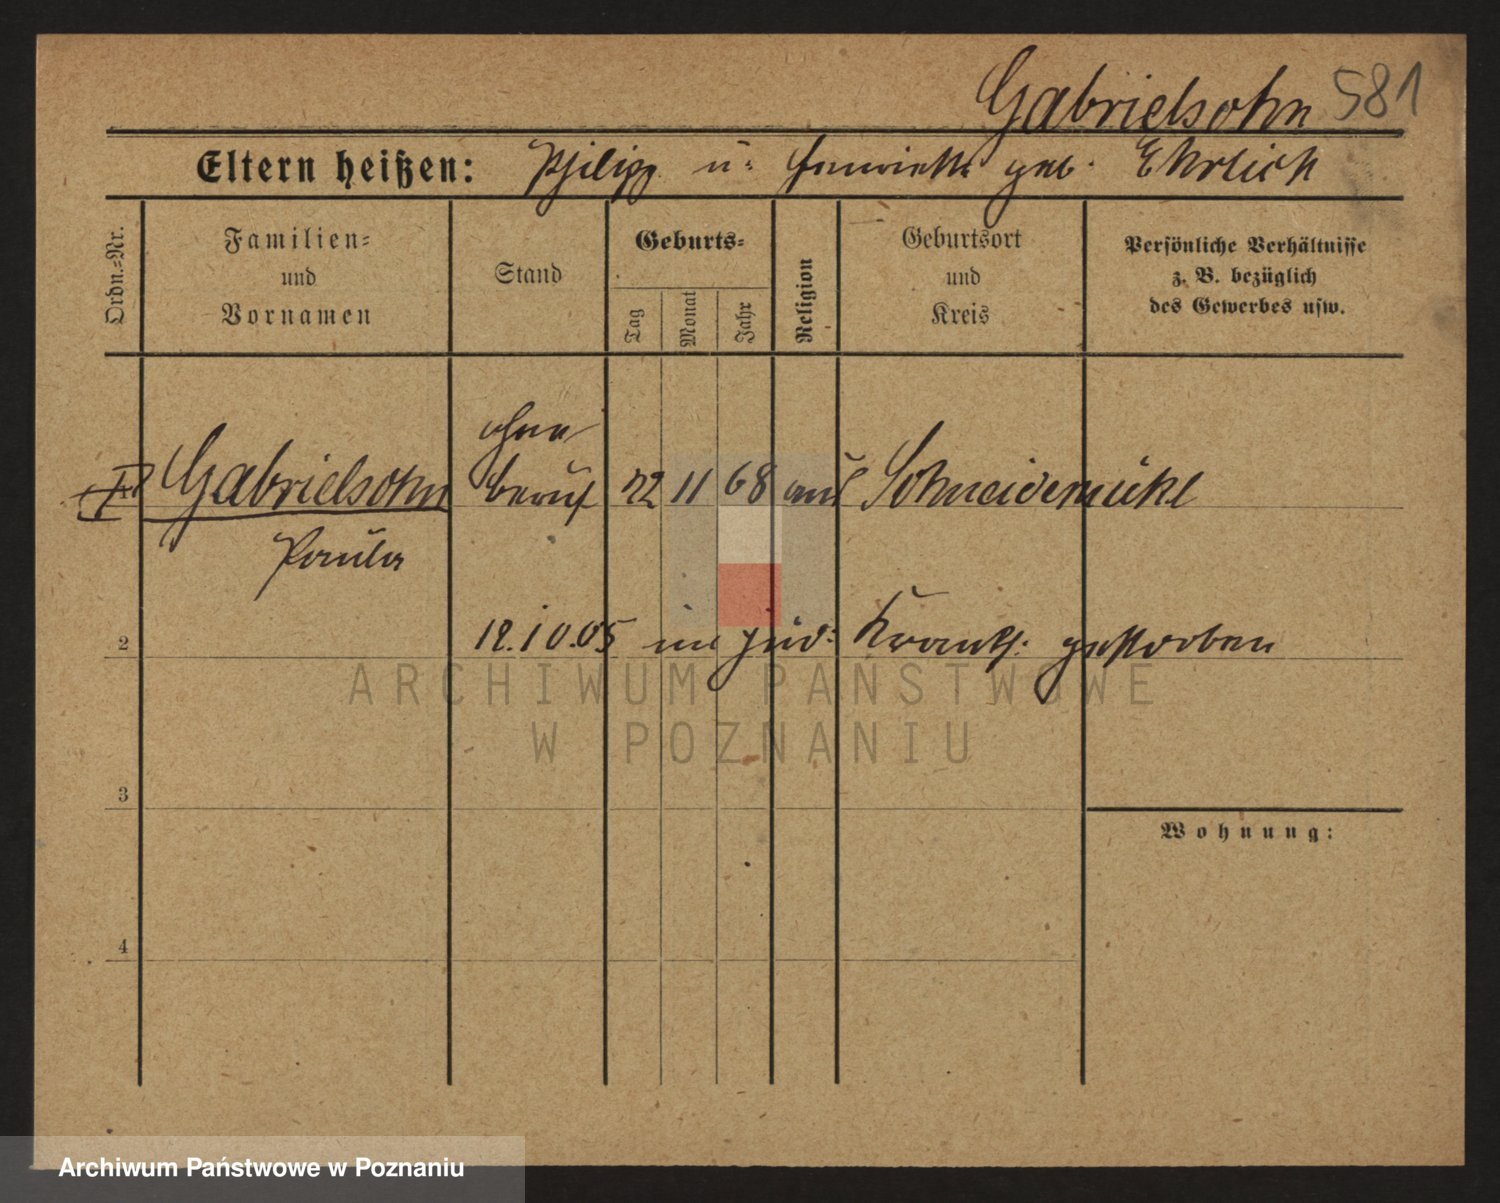 Gabrielsohn 581
Eltern heißen: Philipp u. Henriette geb. Ehrlich
Ordn.-Nr.
Familien-
und
Vornamen
Stand
Geburts-
Tag
Monat
Jahr
Religion
Geburtsort
und
Kreis
Persönliche Verhältnisse
z. B. bezüglich
des Gewerbes usw.
ohne
Gabrielsohn beruf 22 11 68 Schneidemühl
Paula
2
10.05 im jüd: Krankh: gestorben
ARCHIWUM PAŃSTWOWE
W POZNANIU
3
Wohnung:
4
Archiwum Państwowe w Poznaniu